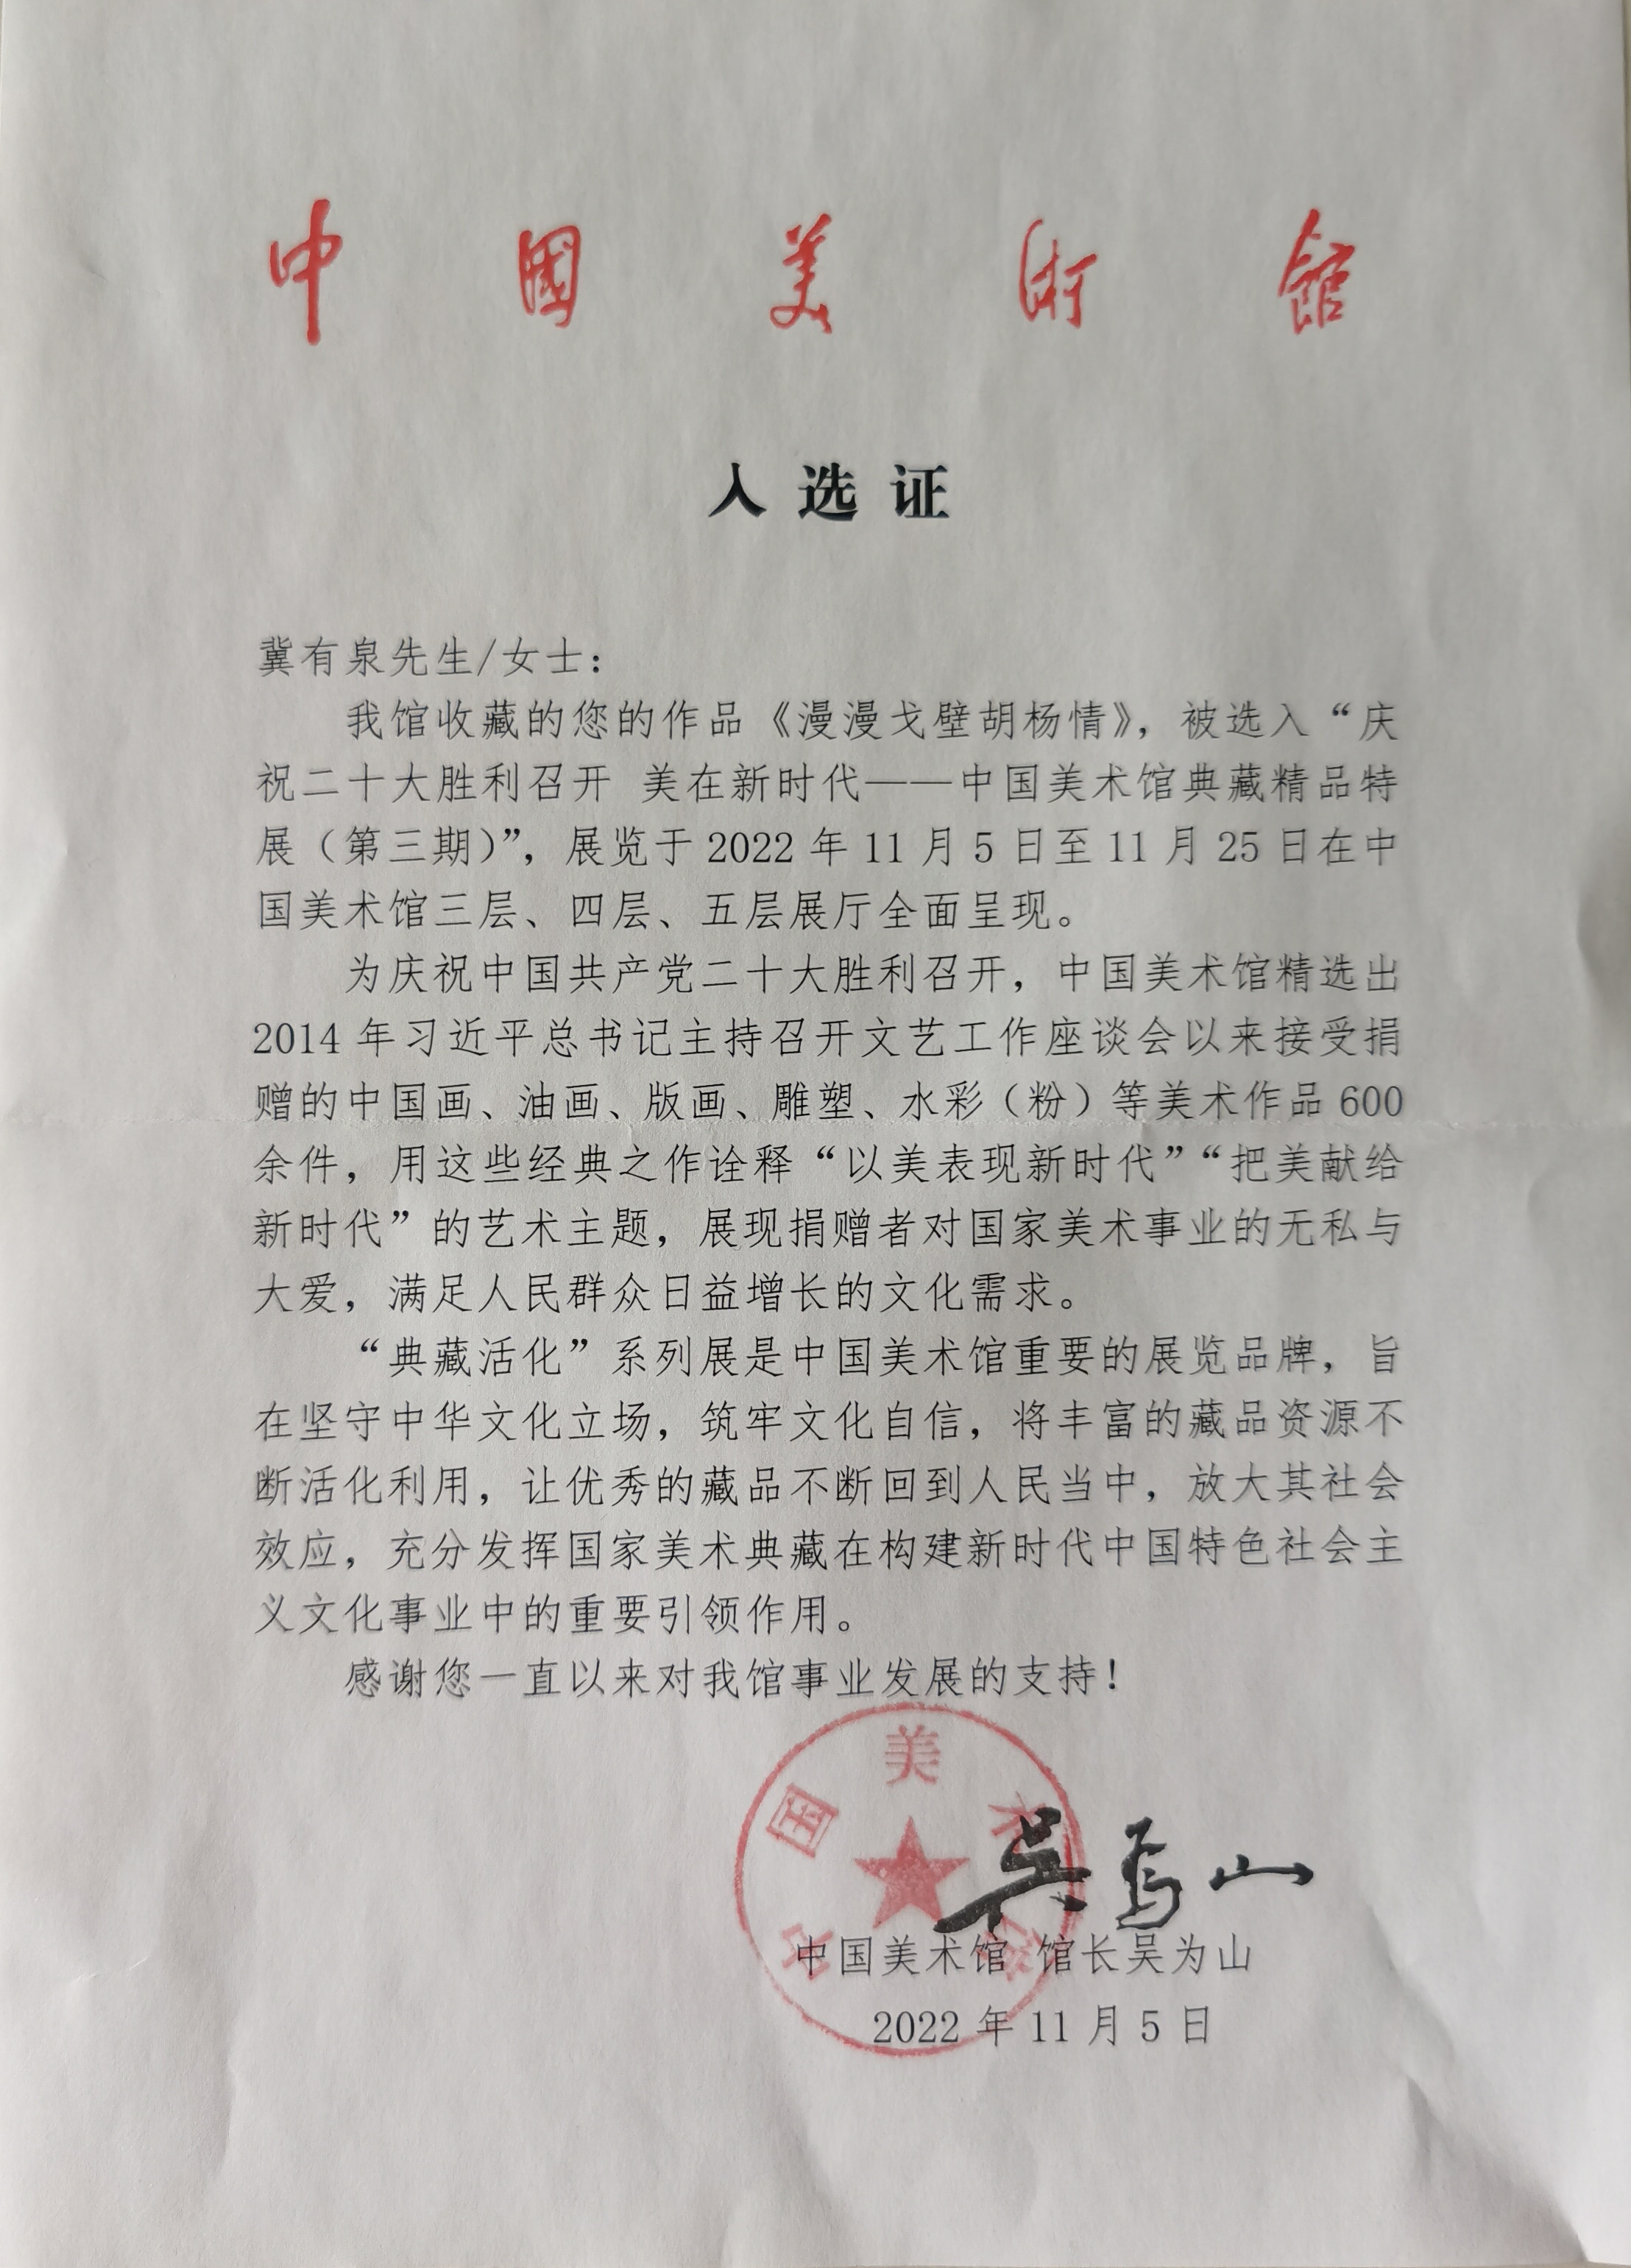 中國美術館
入选证
冀有泉先生/女士：
我馆收藏的您的作品《漫漫戈壁胡杨情》，被选入“庆
祝二十大胜利召开 美在新时代——中国美术馆典藏精品特
展（第三期）”，展览于 2022 年 11 月 5 日至 11 月 25 日在中
国美术馆三层、四层、五层展厅全面呈现。
为庆祝中国共产党二十大胜利召开，中国美术馆精选出
2014 年习近平总书记主持召开文艺工作座谈会以来接受捐
赠的中国画、油画、版画、雕塑、水彩（粉）等美术作品 600
余件，用这些经典之作诠释“以美表现新时代”“把美献给
新时代”的艺术主题，展现捐赠者对国家美术事业的无私与
大爱，满足人民群众日益增长的文化需求。
“典藏活化”系列展是中国美术馆重要的展览品牌，旨
在坚守中华文化立场，筑牢文化自信，将丰富的藏品资源不
断活化利用，让优秀的藏品不断回到人民当中，放大其社会
效应，充分发挥国家美术典藏在构建新时代中国特色社会主
义文化事业中的重要引领作用。
感谢您一直以来对我馆事业发展的支持！
中国美术馆
吴为山
中国美术馆 馆长吴为山
2022 年 11 月 5 日